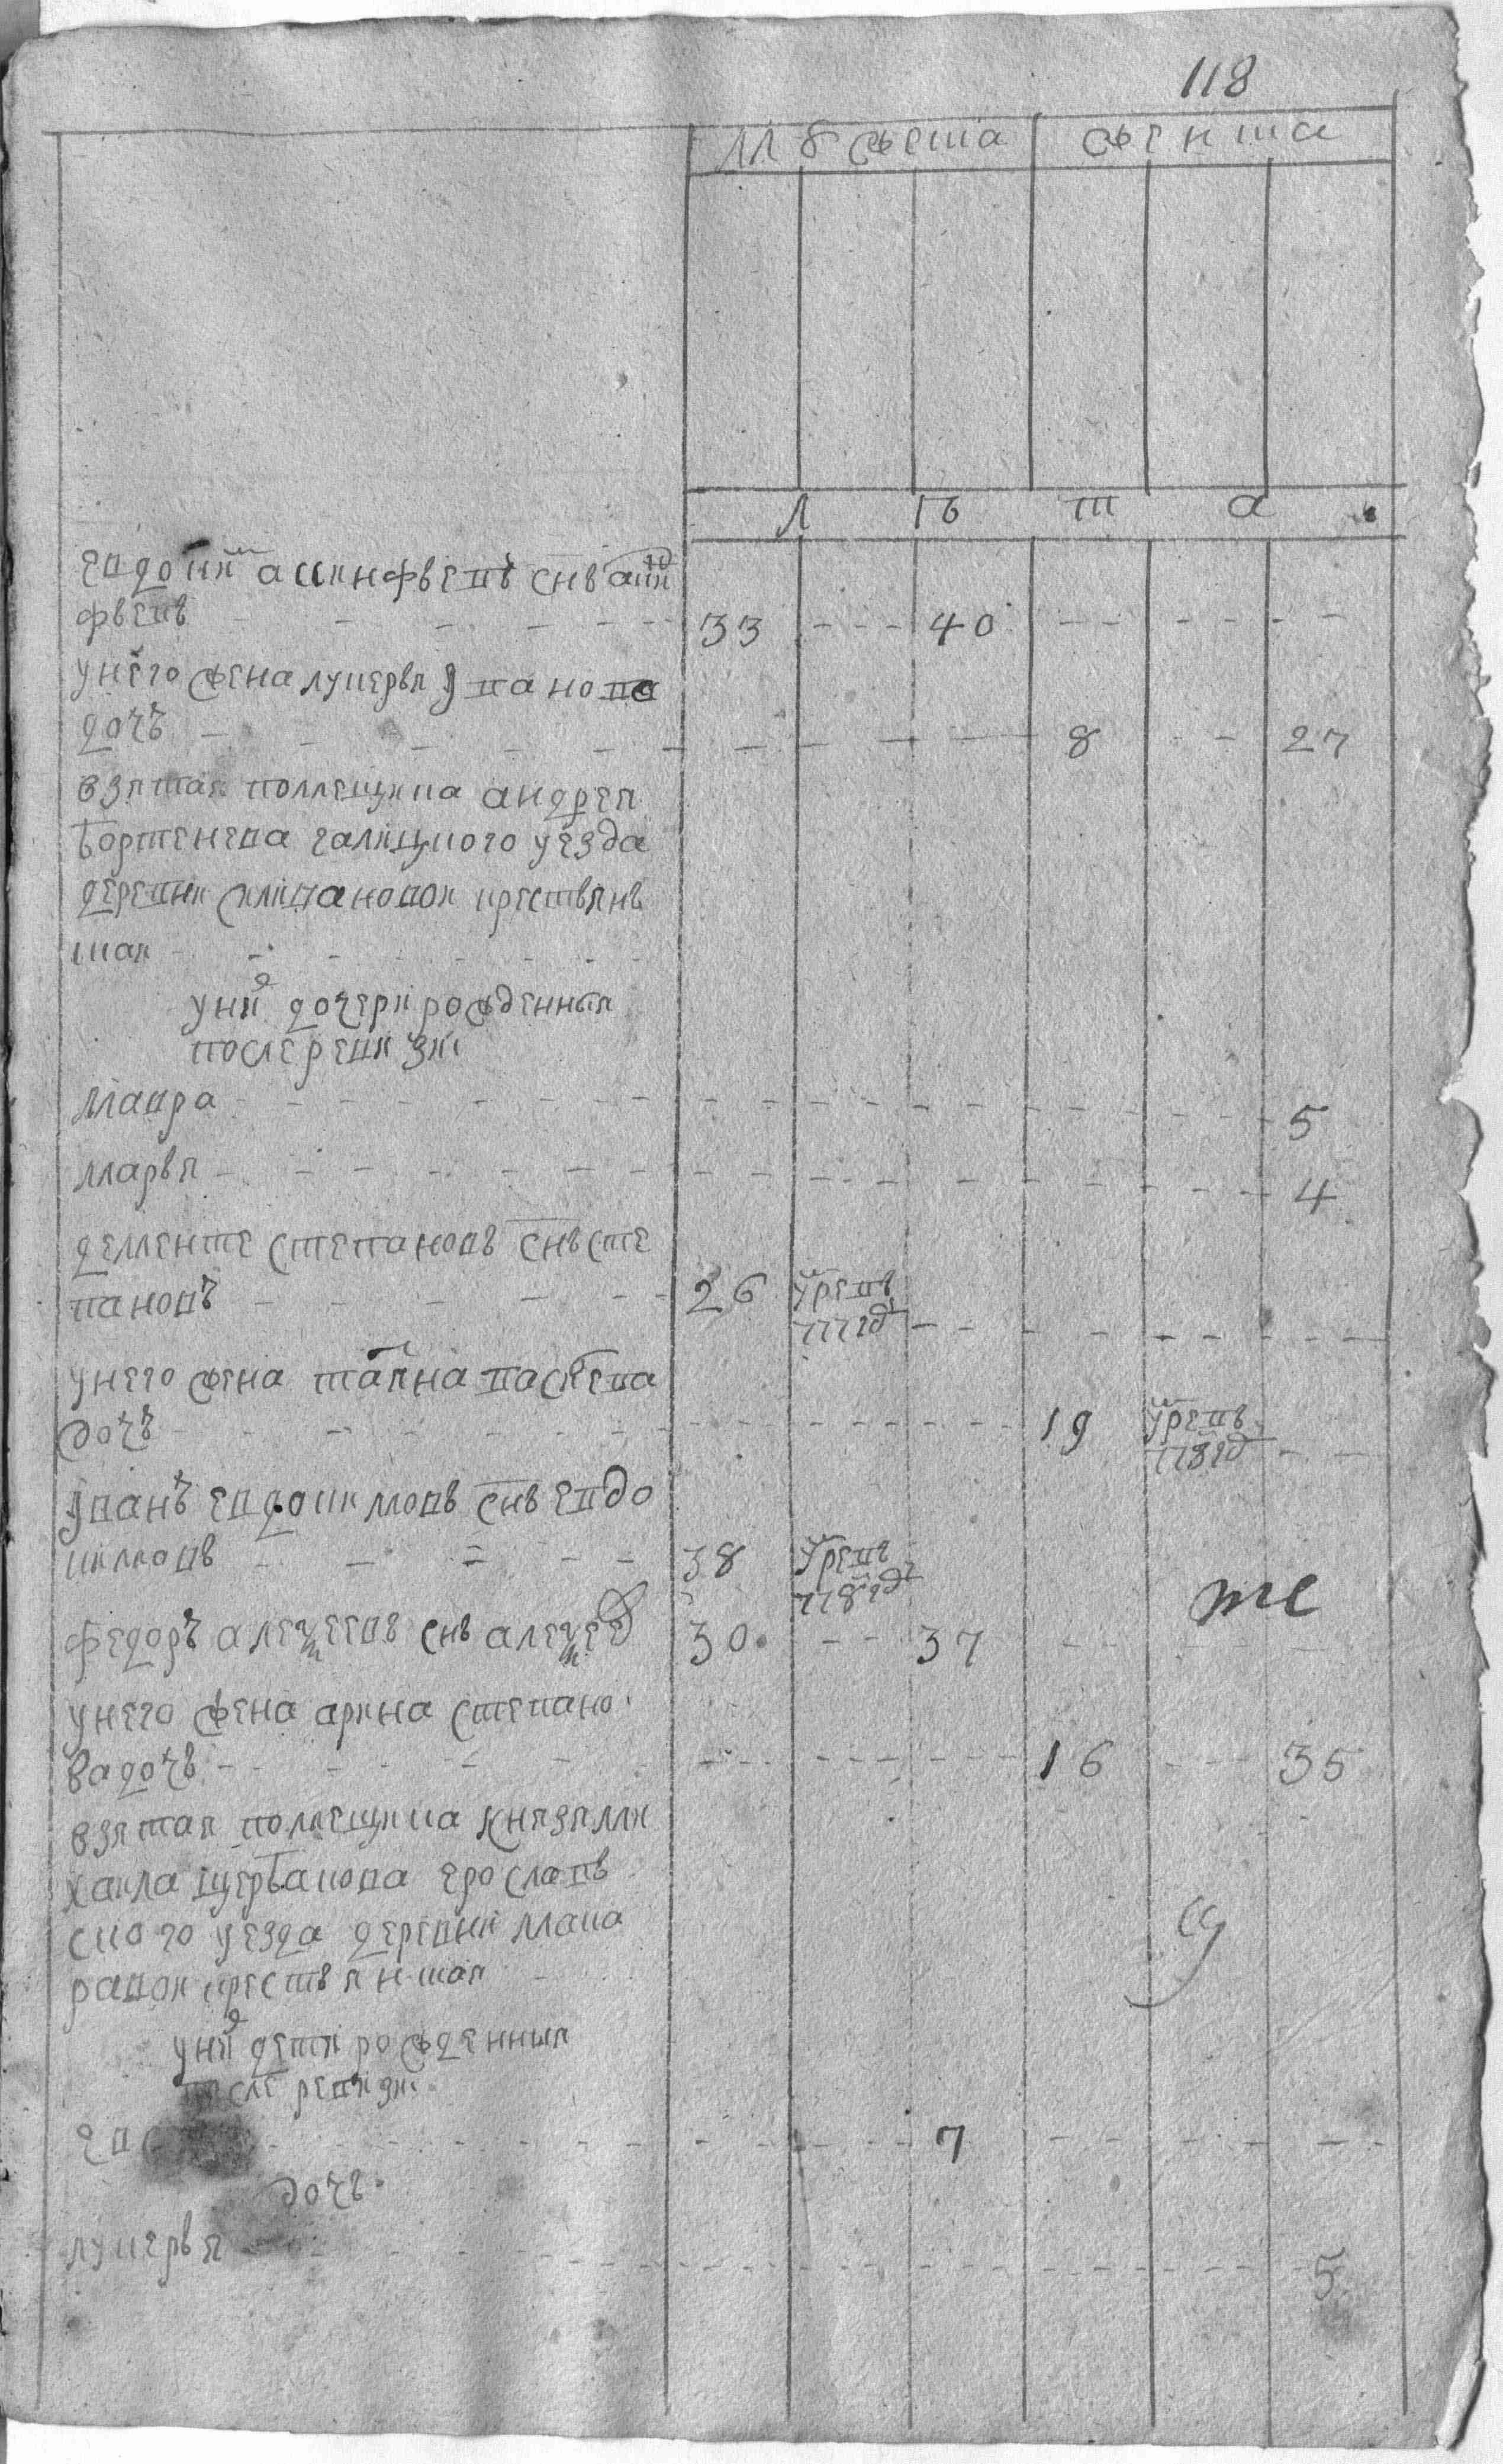 118
мужеска женска
л ѣ т а
евдоким акинфьевъ снъ акин
фьевъ 33 40
унего жена лукерья ивано ва
дочъ 8 27
взятая помещика андрея
бортенева галицкого уезда
деревни селивановой крестьянь
ская
уних дочери рожденныя
после ревизи
мавра 5
марья 4
дементе степановъ снъ сте
пановъ 26
унего жена татяна васильева
дочъ 19
иванъ евдокимовъ снъ евдо
кимовъ 38
федоръ алексеевъ снъ алексеев 30 37
унего жена арина степано
ва дочь 16 35
взятая помещика князя ми
хаила щербакова ерославь
ского уезда деревни мака
равой крестьянская
уних дети рожденныя
после ревизи
7
дочь
лукерья 5